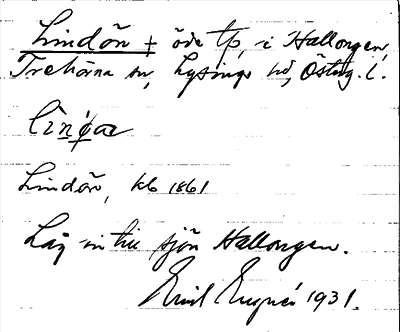 Lindön + öde tp, i Hallongen,
Trehörna sn, Lysings hd, Östg. l.
Lindön, kb 1861
Låg intill sjön Hallongen.
Emil 1931.